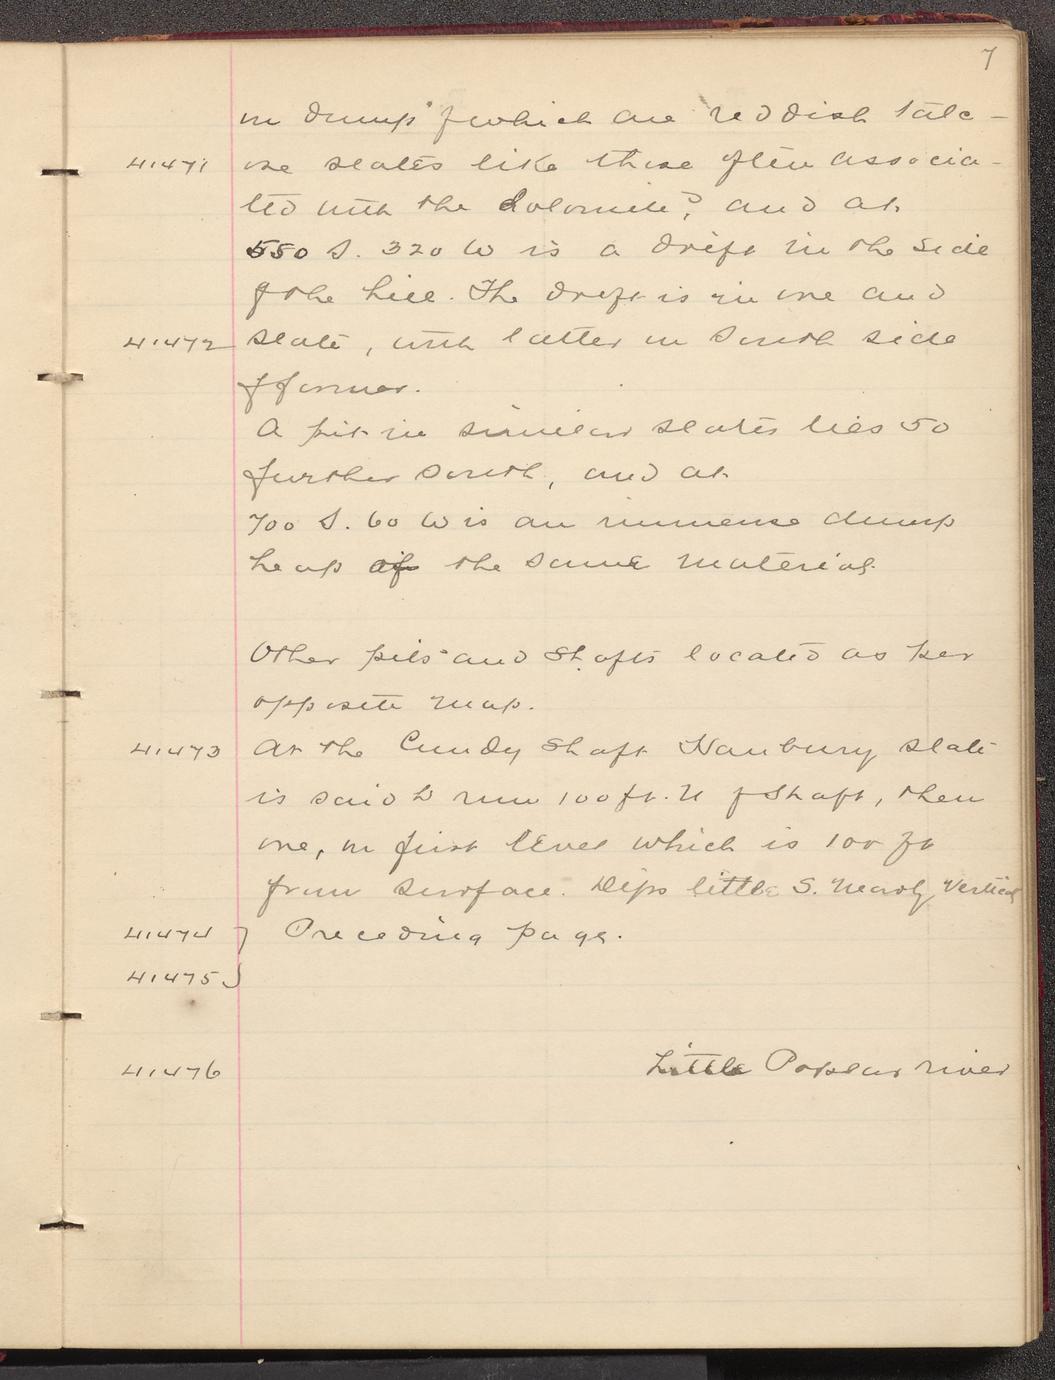 7
in dump of which are reddish talc-
41471 ose slates like those often associa-
ted with the dolomite?, and at
550 S. 320 W is a drift in the side
of the hill. The drift is in ore and
41472 slate, with latter on South side
of former.
A pit in similar slates lies 50
further South, and at
700 S. 60 W is an immense dump
heap of the same material.
Other pits and shafts located as per
opposite map.
41473 At the Cundy Shaft Hanbury slate
is said to run 100 ft. N of shaft, then
ore, in first level which is 100 ft
from surface. Dips little S. Nearly vertical
41474 } Preceding page.
41475
41476 Little Popular river